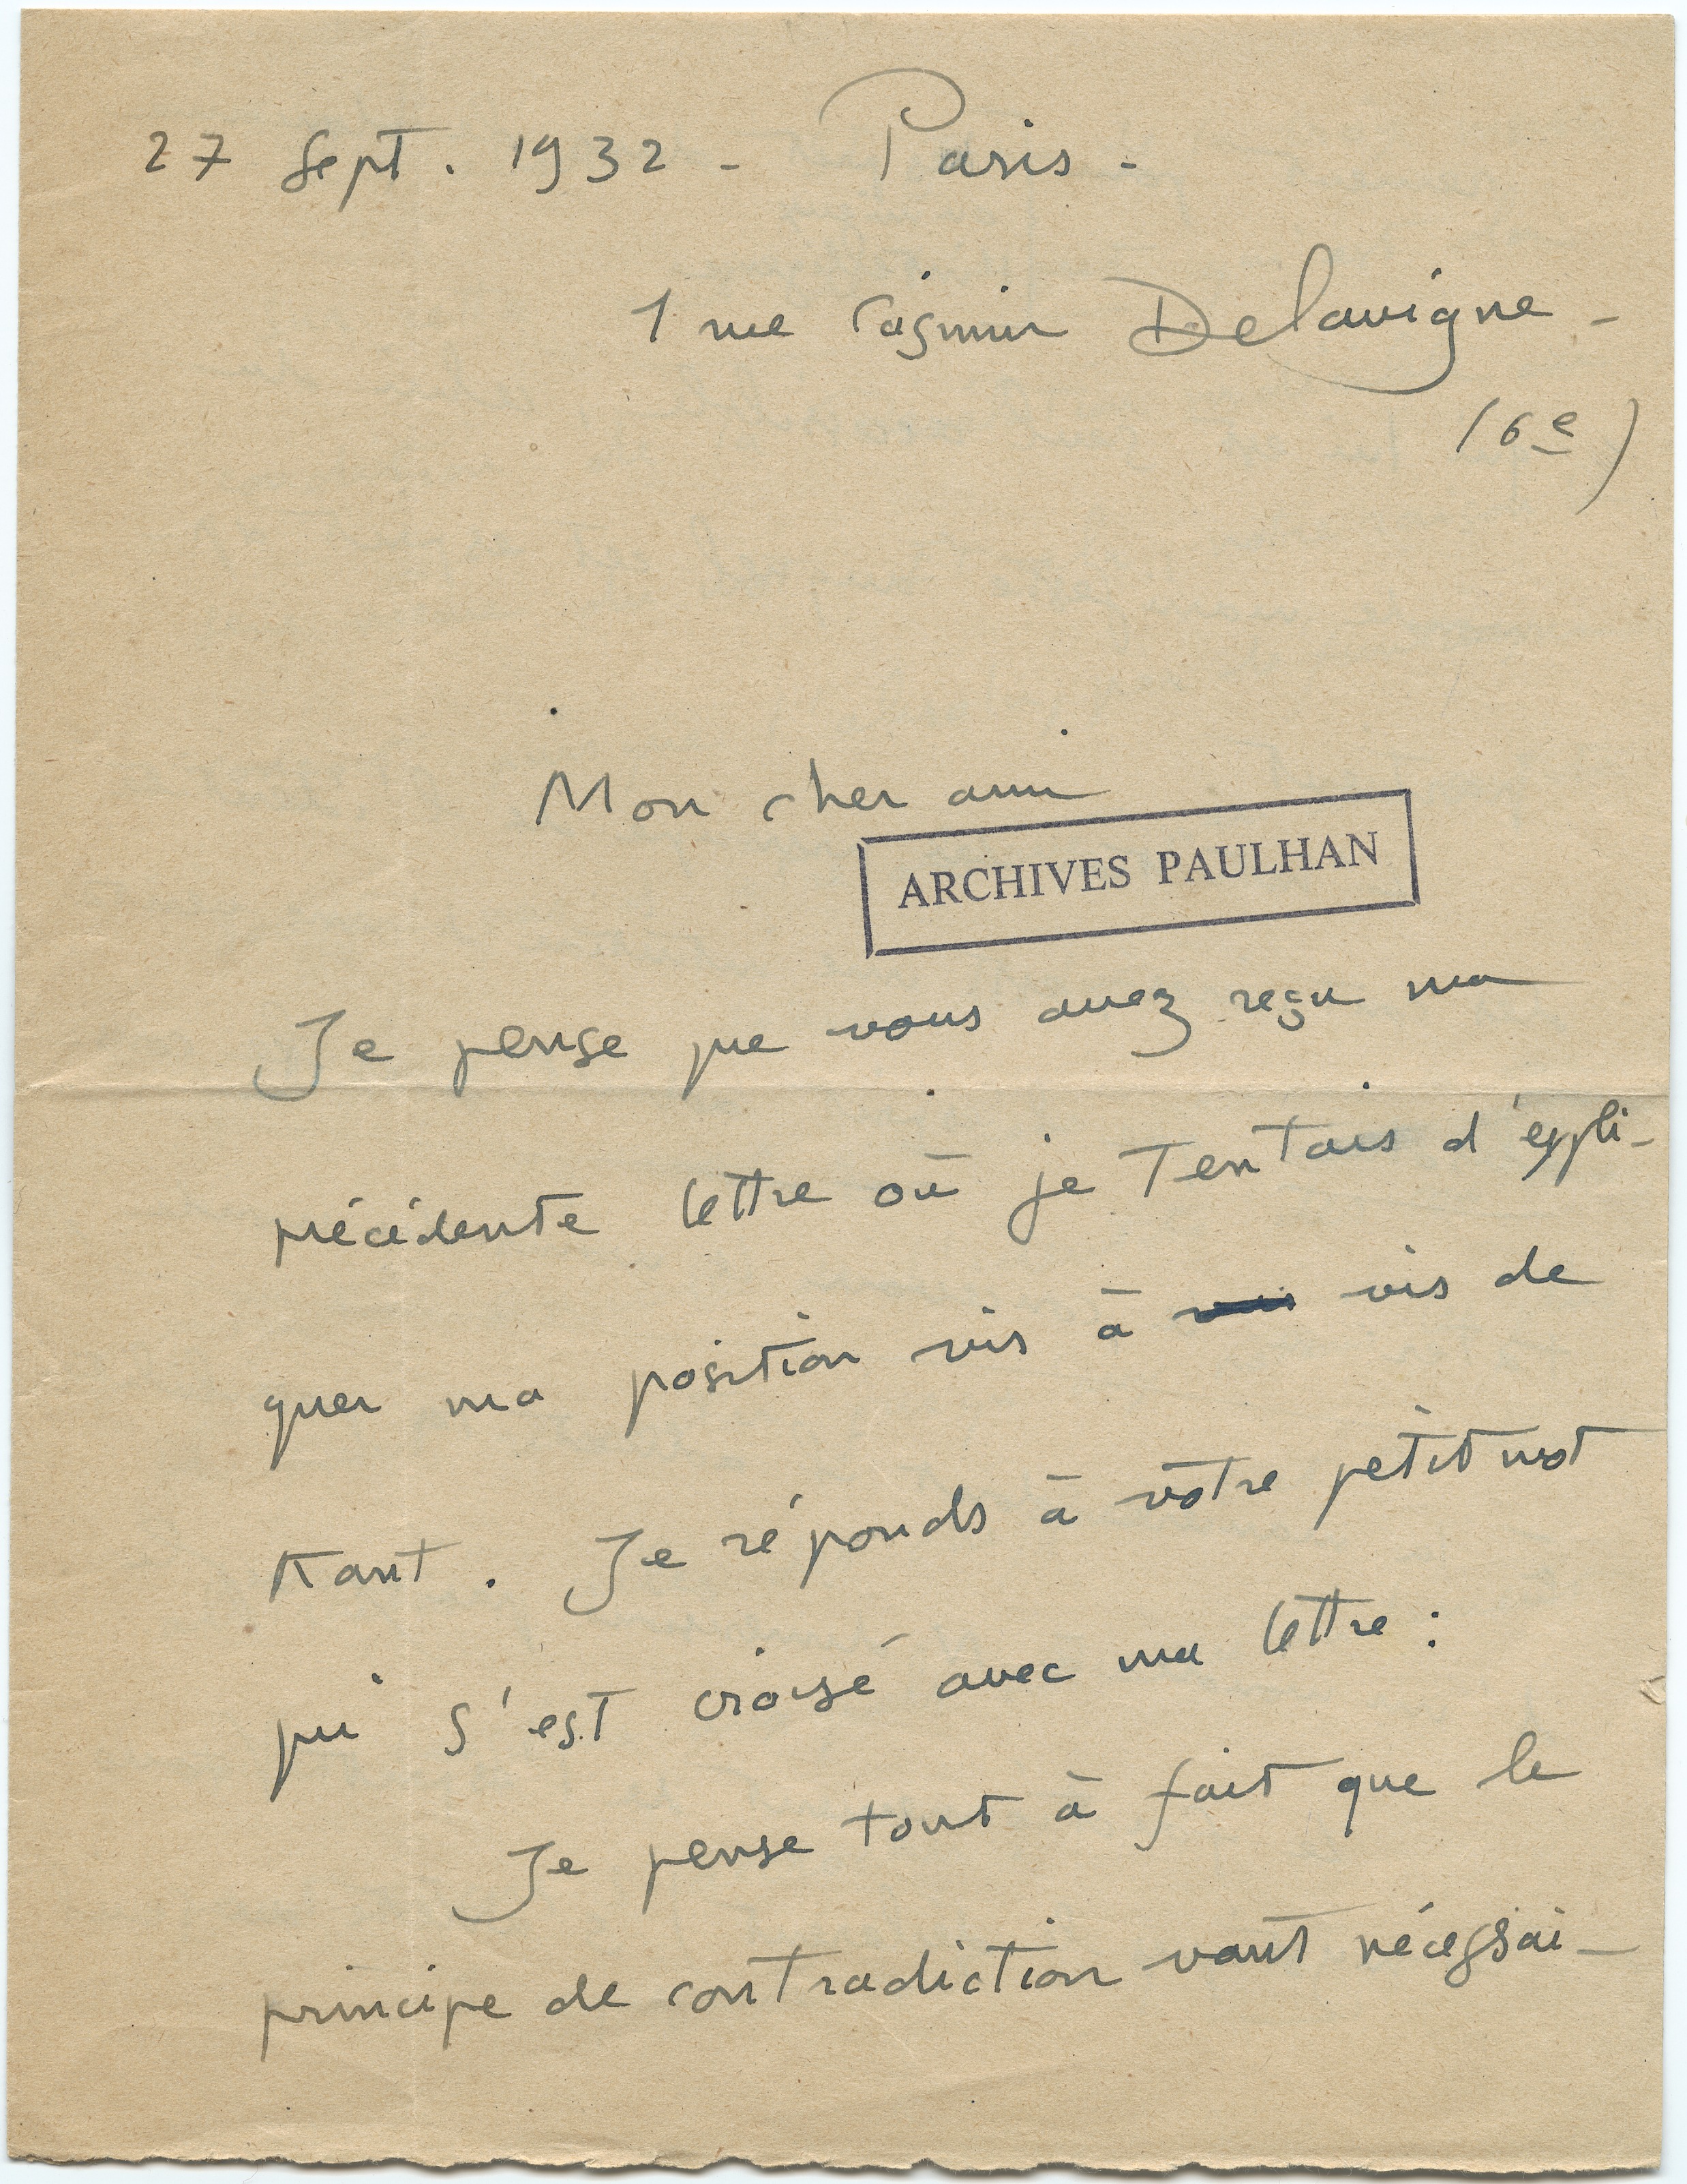 27 Sept. 1932 - Paris -
1 rue Casimir Delavigne -
(6e)
Mon cher ami
ARCHIVES PAULHAN
Je pense que vous avez reçu ma
précédente lettre où je tentais d'expli-
quer ma position vis à vis de
Kant. Je réponds à votre petit mot
qui s'est croisé avec ma lettre :
Je pense tout à fait que le
principe de contradiction vaut nécessai-